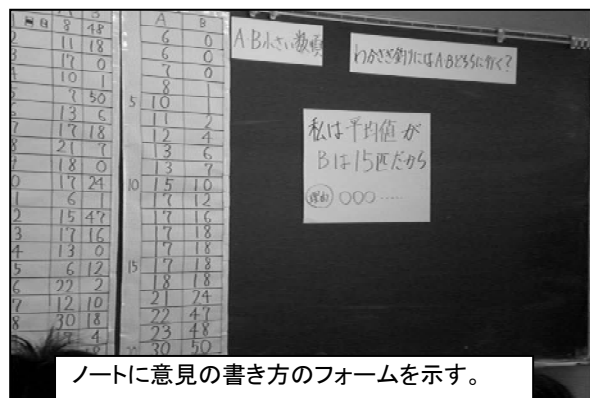 8 48
11 18
17 0
10 1
7 50
13 6
17 18
21 7
18 0
17 24
6 1
15 47
17 16
13 0
6 12
22 2
12 10
30 18
A B
6 0
6 0
7 0
8 1
5 10 1
11 2
12 4
13 6
13 7
10 15 10
17 12
17 16
17 18
17 18
15 17 18
18 18
21 24
22 47
23 48
30 50
A・B小さい数順
わかさぎ釣りにはA・Bどちらに行く?
私は平均値が
Bは15匹だから
理由 ○○○……
ノートに意見の書き方のフォームを示す。